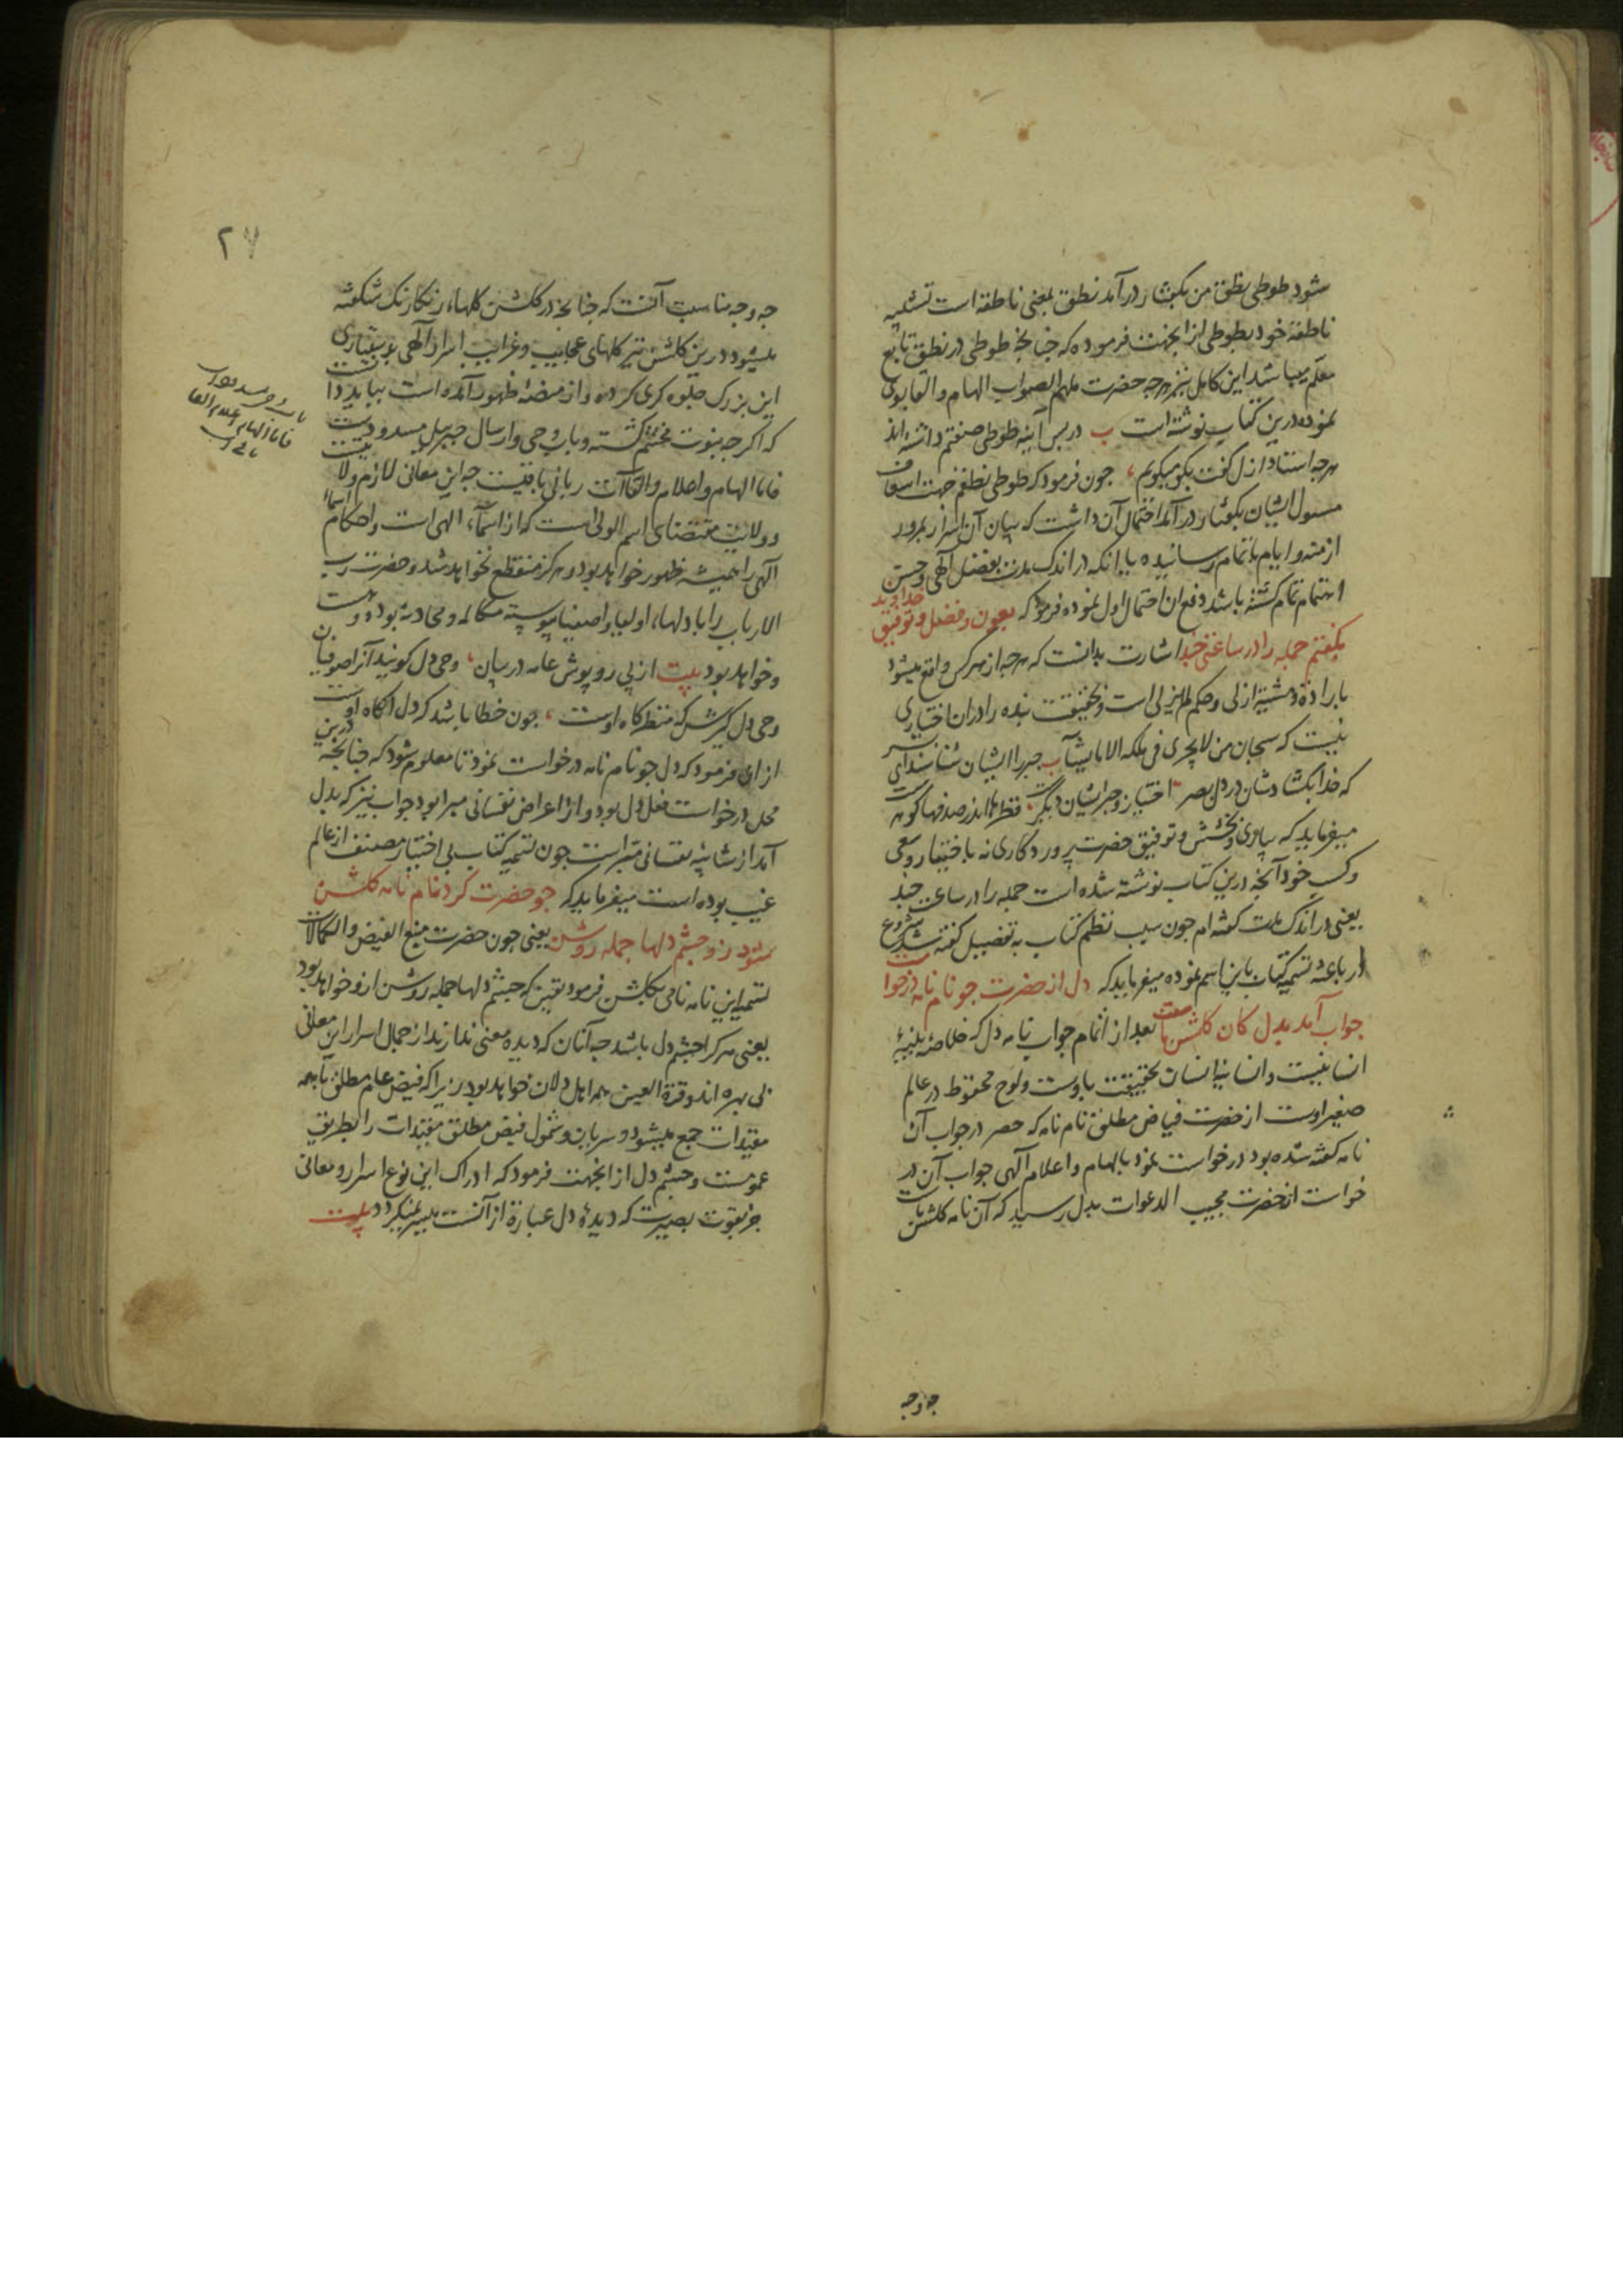 شود طوطی نطق من بگفتار درآمد نطق بمعنی ناطقه است تشبیه
ناطقهٔ خود بطوطی ازانجهت فرموده که چنانچه طوطی در نطق تابع
معلم میباشد این کامل نیز هرچه حضرت ملهم الصواب الهام و القا بوی
نموده درین کتاب نوشته است ب در پس آینه طوطی صفتم داشته‌اند
هرچه استاد ازل گفت بگو میگویم، چون فرمود که طوطی نطقم جهت اسعاف
مسئول ایشان بگفتار درآمد احتمال آن داشت که بیان آن اسرار بمرور
ازمنه و ایام باتمام رسانیده یا انکه در اندک مدت بفضل آلهی و حسن
اهتمام تمام گشته باشد دفع ان احتمال اول نموده فرمود که بعون و فضل و توفیق خداوند
بگفتم جمله را در ساعتی چند اشارت بدانست که هرچه از هرکس واقع میشود
بارادة و مشیة ازلی و حکم لم یزلی است و بحقیقت بنده را در ان اختیاری
نیست که سبحان من لا یجری فی ملکه الا ما یشآ ب جبر را ایشان شناسند ای پسر
که خدا بگشادشان در دل بصر اختیار و جبر ایشان دیگرست، قطرها اندر صدفها گوهرست
میفرماید که بیاوری و بخشش و توفیق حضرت پروردگاری نه باختیار و سعی
و کسب خود آنچه درین کتاب نوشته شده است جمله را در ساعت چند
یعنی در اندک مدت گفته‌ام چون سبب نظم کتاب به تفصیل گفته شد شروع
در باعثه تسمیه کتاب باین اسم نموده میفرماید که دل از حضرت چو نام نامه درخواست
جواب آمد بدل کان گلشن ماست بعد از اتمام جواب نامه دل که خلاصهٔ بنیهٔ
انسانیست و انسانیة انسان بحقیقت باوست و لوح محفوظ در عالم
صغیر اوست از حضرت فیاض مطلق نام نامه که حصر در جواب آن
نامه گفته شده بود درخواست نمود بالهام و اعلام آلهی جواب آن در
خواست از حضرت مجیب الدعوات بدل رسید که آن نامه گلشن ماست
چه وجه
۲۷
چه وجه مناسبت آنست که چنانچه در گلشن گلهاء رنگارنگ شکفته
میشود درین گلشن نیز گلهای عجایب و غرایب اسرار آلهی بدستیاری
این بزرگ جلوه گری کرده و از منصهٔ ظهور آمده است بباید دانست
که اگرچه نبوت مختتم گشته و باب وحی و ارسال جبرییل مسدودست
فاما الهام و اعلام و القاآت ربانی باقیست چه این معانی لازم ولایت
و ولایت مقتضای اسم الولی است که از اسمآء الهی است و احکام اسمآء
آلهی را همیشه ظهور خواهد بود و هرگز منقطع نخواهد شد و حضرت رب
الارباب را با دلهاء اولیا و اصفیا پیوسته مکالمه و محادثه بوده و هست
و خواهد بود بیت از پی روپوش عامه در بیان، وحی دل گویند آنرا صوفیان
وحی دل گیرش که منظرگاه اوست، چون خطا باشد که دل آگاه اوست
از ان فرمود که دل چو نام نامه درخواست نمود تا معلوم شود که چنانچه درین
محل درخواست فعل دل بود و از اعراض نفسانی مبرا بود جواب نیز که بدل
آمد از شائبهٔ نفسانی مبراست چون تسمیه کتاب بی اختیار مصنف از عالم
غیب بوده است میفرماید که چو حضرت کرد نام نامه گلشن
شود زو چشم دلها جمله روشن یعنی چون حضرت منبع الفیض و الکمالات
تسمیه این نامه نامی بگلشن فرمود یقین که چشم دلها جمله روشن ازو خواهد بود
یعنی هرکرا چشم دل باشد چه آنان که دیده معنی ندارند از جمال اسرار این معانی
بی بهره‌اند و قرة العین همه اهل دلان خواهد بود زیرا که فیض عام مطلق با همه
مقیدات جمع میشود و سریان و شمول فیض مطلق مقیدات را بطریق
عمومست و چشم دل از انجهت فرمود که ادراک این نوع اسرار و معانی
جز بقوت بصیرت که دیدهٔ دل عبارة از آنست میسر نمیگردد بیت
باب وحی مسدود
فاما الهام و اعلام و القا
باقی